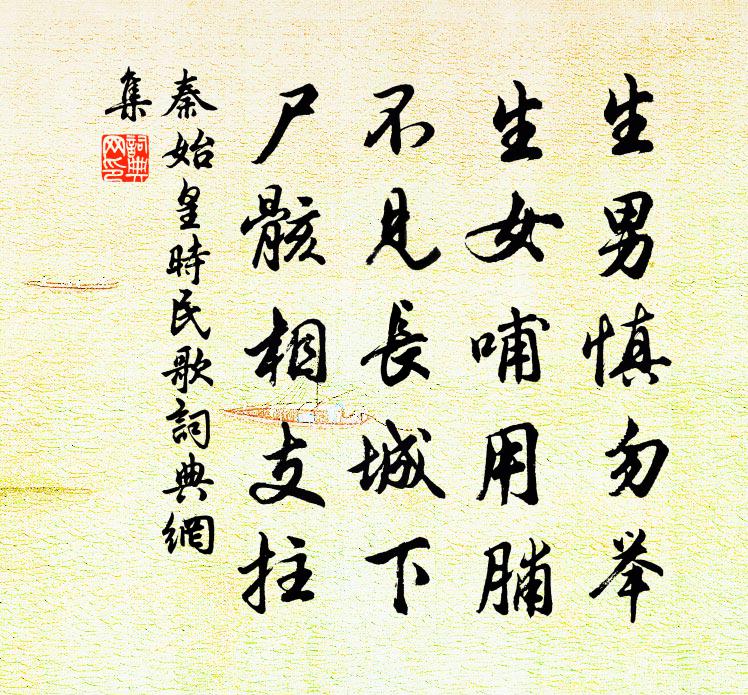 生男慎勿举
生女哺用脯
不见長城下
尸骸相支拄
秦始皇時民歌詞典網
集
詞典
网印